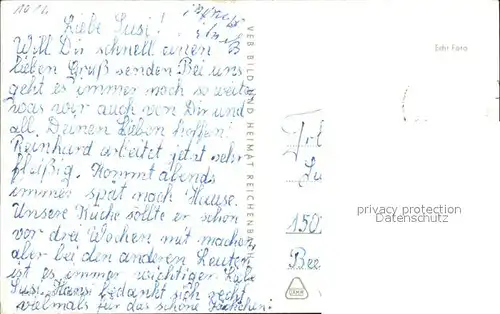 Liebe Susi!
Will Dir schnell einen
lieben Gruß senden Bei uns
geht es immer noch so weit
was wir auch von Dir und
all Deinen Lieben hoffen
Reinhard arbeitet jetzt sehr
fleißig. Kommt abends
immer spät nach Hause.
Unsere Küche sollte er schon
vor drei Wochen mit machen,
aber bei den anderen Leuten
ist es immer wichtiger. Liebe
Susi, Hansi bedankt sich recht
vielmals für das schöne
VEB BILD UND HEIMAT REICHENB
Echt Foto
150
Bee
privacy protection
Datenschutz